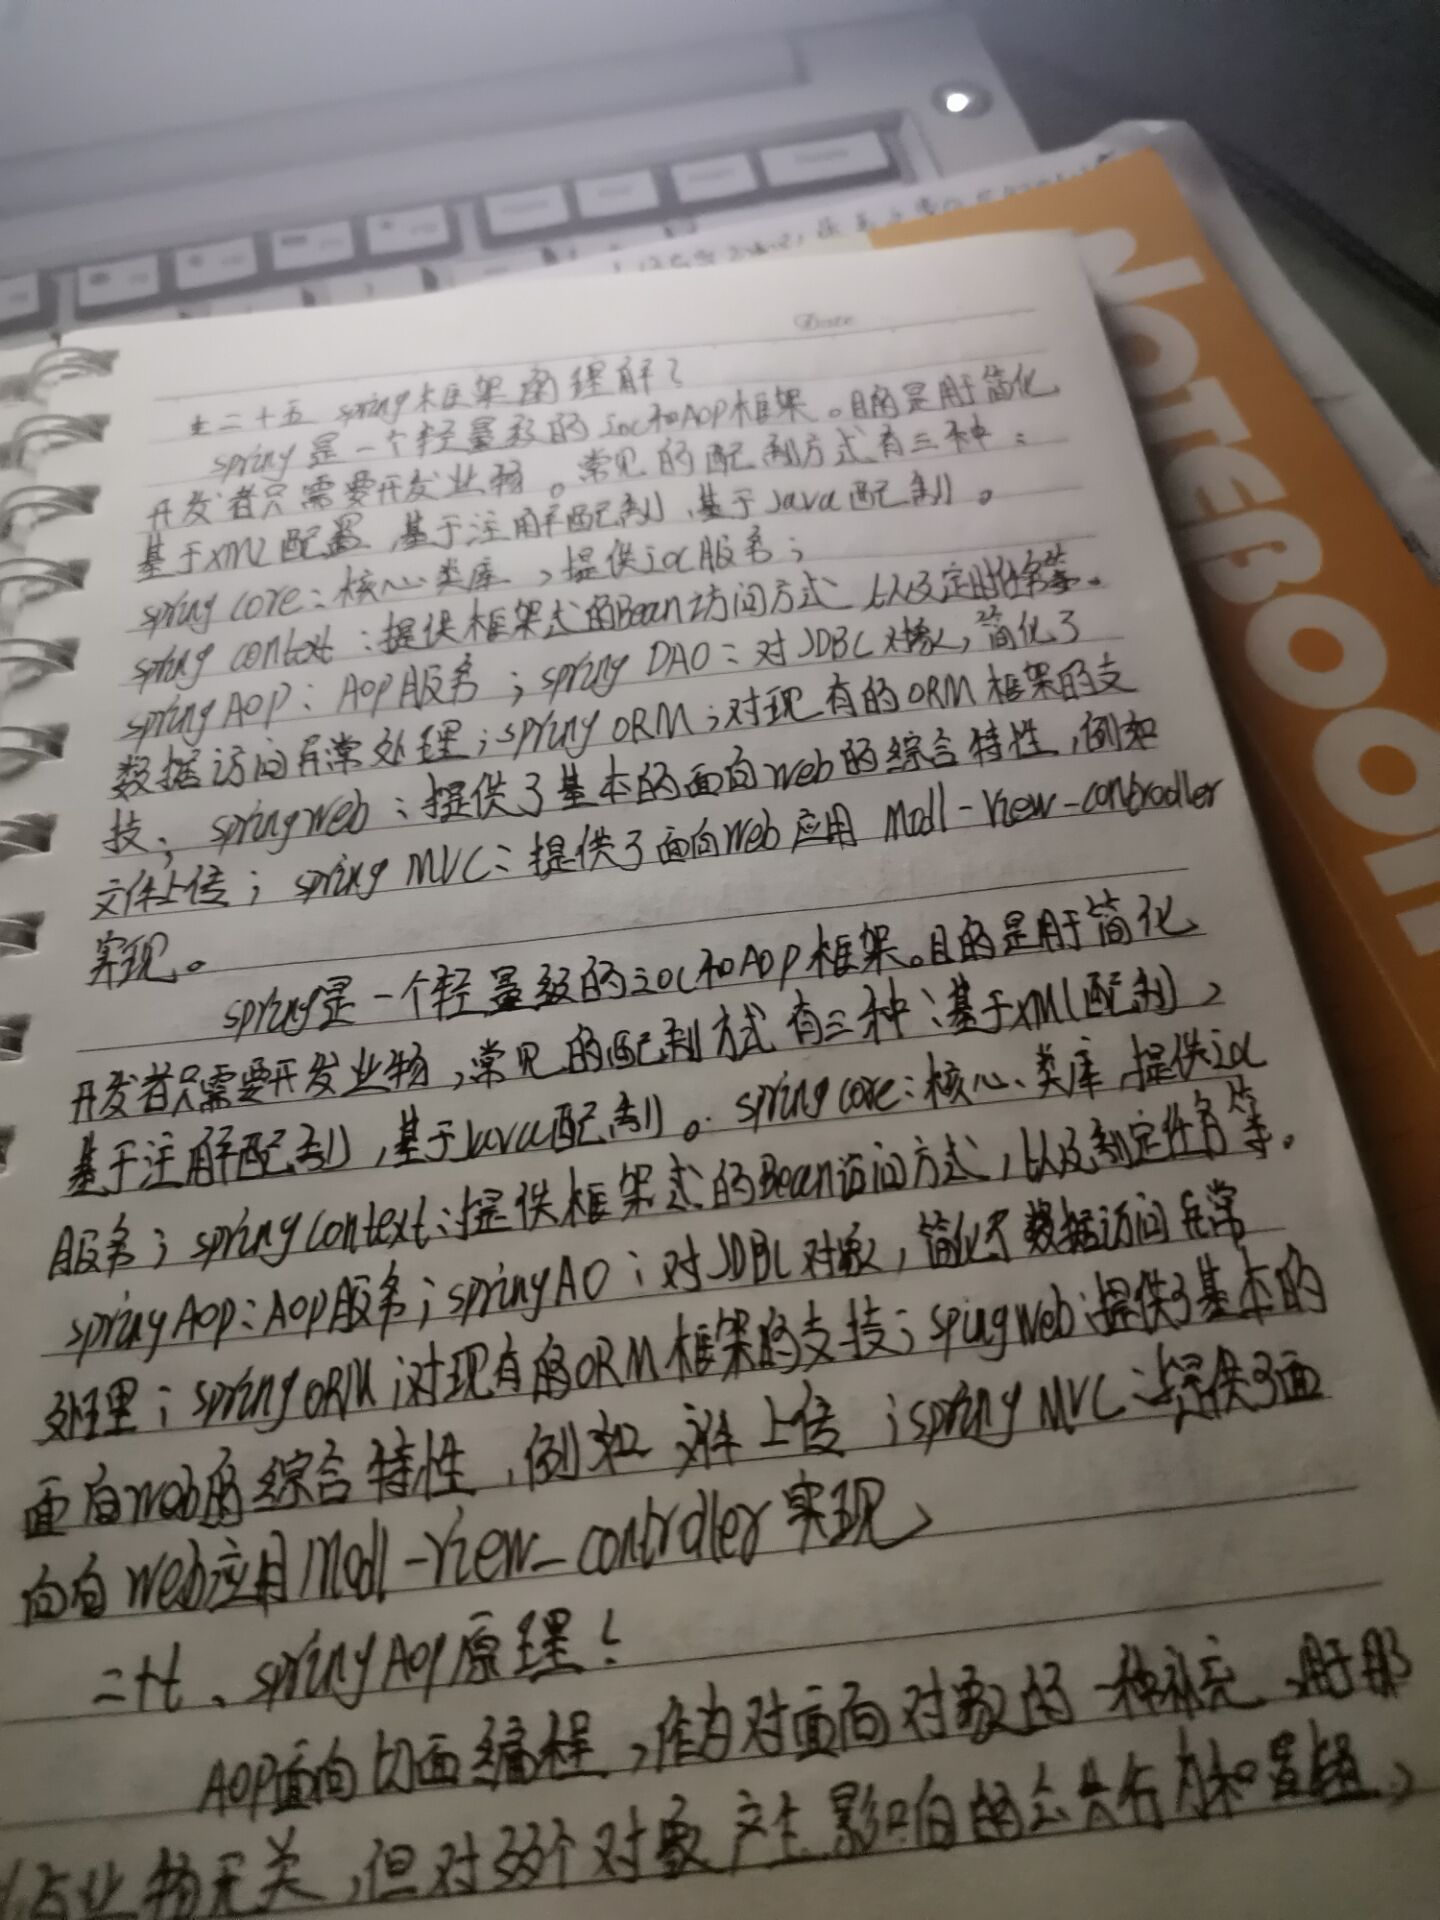 Date
二十五 spring框架的理解?
spring是一个轻量级的ioc和AOP框架。目的是用于简化
开发者只需要开发业物。常见的配制方式有三种:
基于xml配置,基于注解配制,基于Java配制。
spring core:核心类库,提供ioc服务;
spring context:提供框架式的Bean访问方式 以及定时任务等。
spring AOP:AOP服务;spring DAO:对JDBC对象,简化了
数据访问异常处理;spring ORM;对现有的ORM框架的支
技;spring web:提供了基本的面向web的综合特性,例如
文件上传;spring MVC:提供了面向Web应用 Modl-View-controller
实现。
spring是一个轻量级的ioc和AOP框架。目的是用于简化
开发者只需要开发业物,常见的配制方式有三种:基于xml配制,
基于注解配制,基于Java配制。spring core:核心类库,提供ioc
服务;spring context:提供框架式的Bean访问方式,以及制定任务等。
spring AOP:AOP服务;spring AO:对JDBC对象,简化了数据访问异常
处理;spring ORM;对现有的ORM框架的支技;sping Web:提供了基本的
面向web的综合特性,例如 文件上传;spring MVC:提供了面
向向Web应用Modl-View-controller实现,
二十七、spring AOP原理?
AOP面向切面编程,作为对面向对象的一种补充,用于那
些与业物无关,但对多个对象产生影响的公共行为和逻辑,
NOTEBOOK